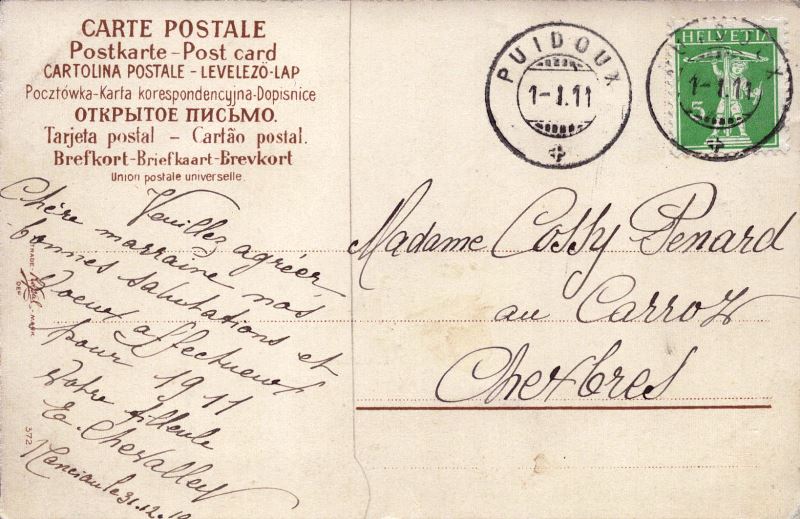 CARTE POSTALE
Postkarte - Post card
CARTOLINA POSTALE - LEVELEZŐ-LAP
Pocztówka-Karta korespondencyjna-Dopisnice
ОТКРЫТОЕ ПИСЬМО.
Tarjeta postal - Cartão postal.
Brefkort-Briefkaart-Brevkort
Union postale universelle.
PUIDOUX
1-I.11
HELVETIA
5
PUIDOUX
1-I.11
Chère marraine
Veuillez agréer nos
bonnes salutations et
voeux affectueux
pour 1911
Votre filleule
E. Chevalley
31.12.10
TRADE MARK
DEP.
572
Madame Cossy Penard
au Carroz
Chexbres